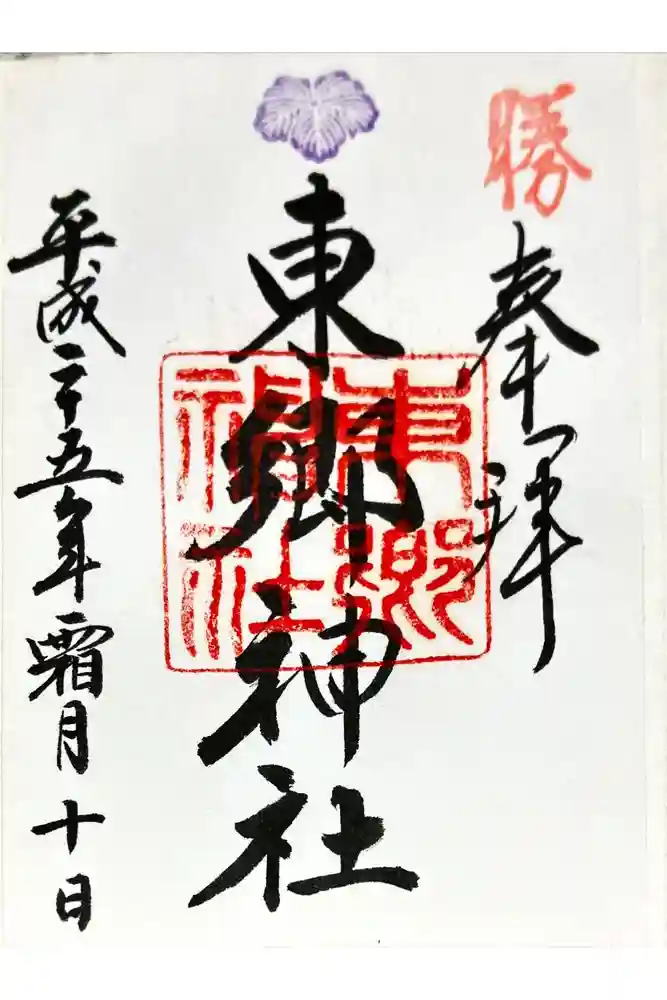 勝
奉拝
東郷神社
東郷
神社
平成二十五年霜月十日